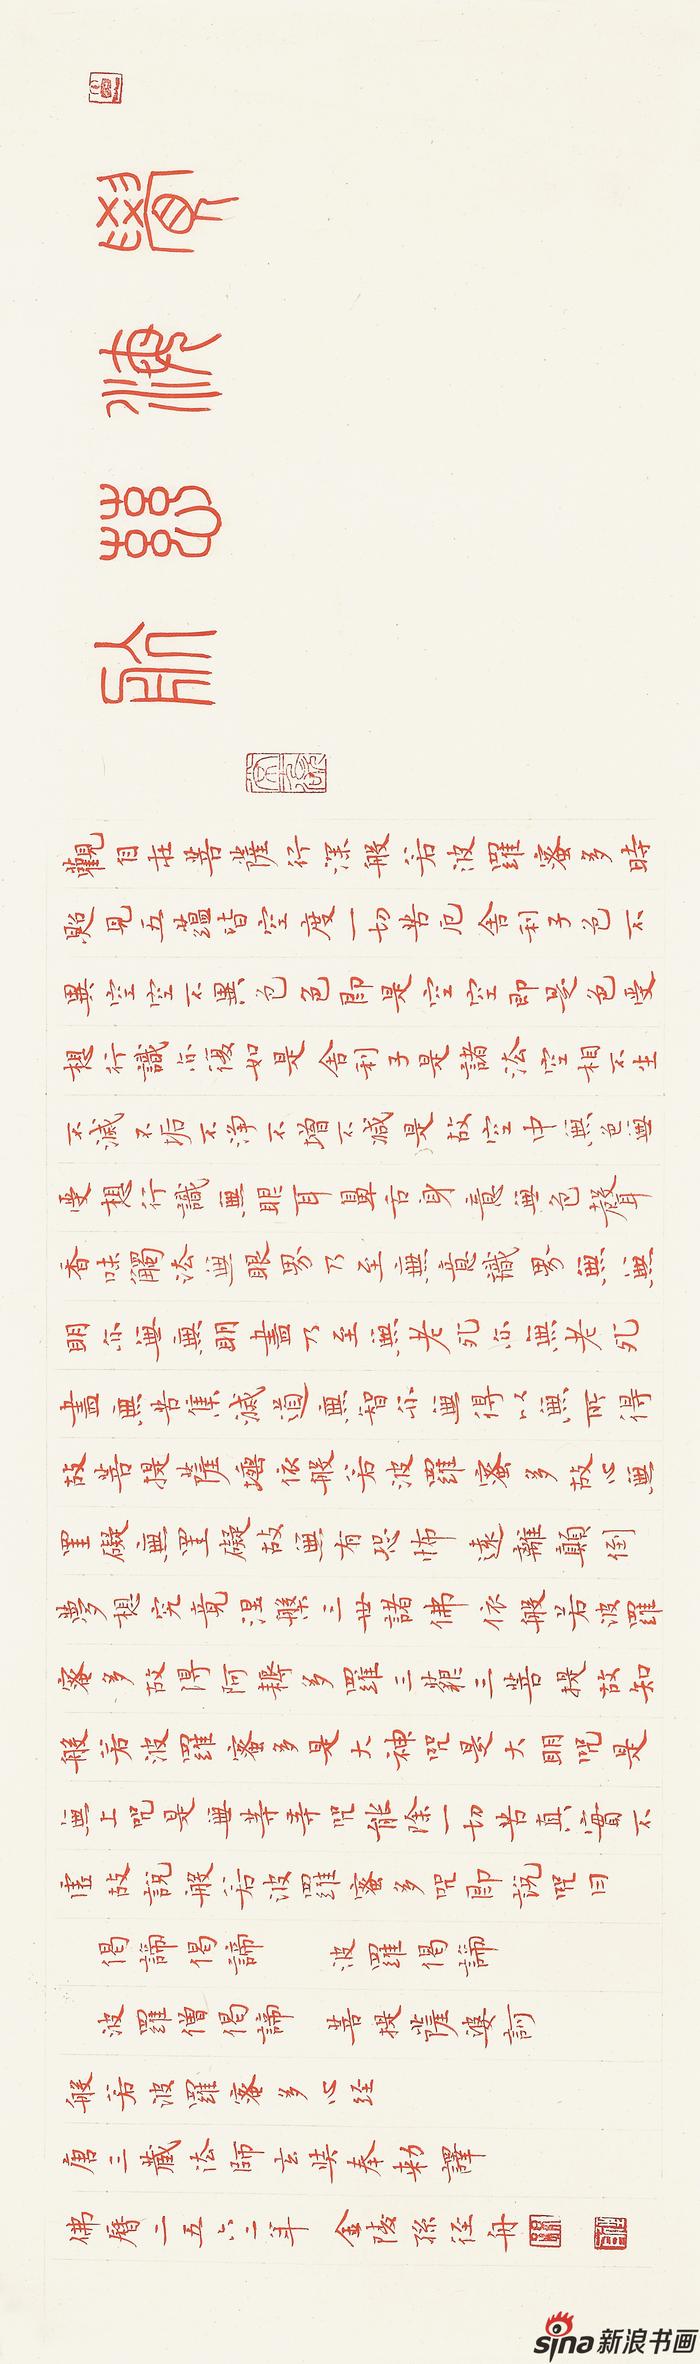 覺海慈航
觀自在菩薩行深般若波羅蜜多時
照見五蘊皆空度一切苦厄舍利子色不
異空空不異色色即是空空即是色受
想行識亦復如是舍利子是諸法空相不生
不滅不垢不淨不增不減是故空中無色無
受想行識無眼耳鼻舌身意無色聲
香味觸法無眼界乃至無意識界無無
明亦無無明盡乃至無老死亦無老死
盡無苦集滅道無智亦無得以無所得
故菩提薩埵依般若波羅蜜多故心無
罣礙無罣礙故無有恐怖遠離顛倒
夢想究竟涅槃三世諸佛依般若波羅
蜜多故得阿耨多羅三藐三菩提故知
般若波羅蜜多是大神咒是大明咒是
無上咒是無等等咒能除一切苦真實不
虛故說般若波羅蜜多咒即說咒曰
偈諦偈諦 波羅偈諦
波羅僧偈諦 菩提薩婆訶
般若波羅蜜多心経
唐三藏法師玄奘奉勅譯
佛曆二五六二年 金陵孫径舟
sina新浪书画